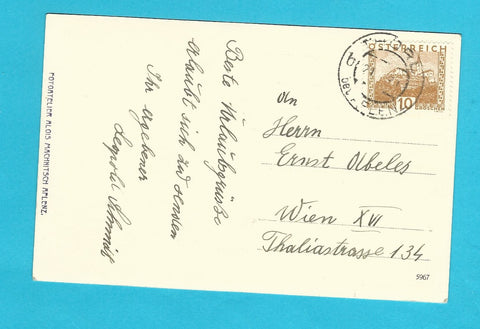 Beste Urlaubsgrüße
erlaubt sich zu senden
Ihr ergebener
Leopold Schmidt
FOTOATELIER ALOIS MACHNITSCH AFLENZ.
ÖSTERREICH
10
An
Herrn
Ernst Abeles
Wien XVI
Thaliastrasse 134
5967